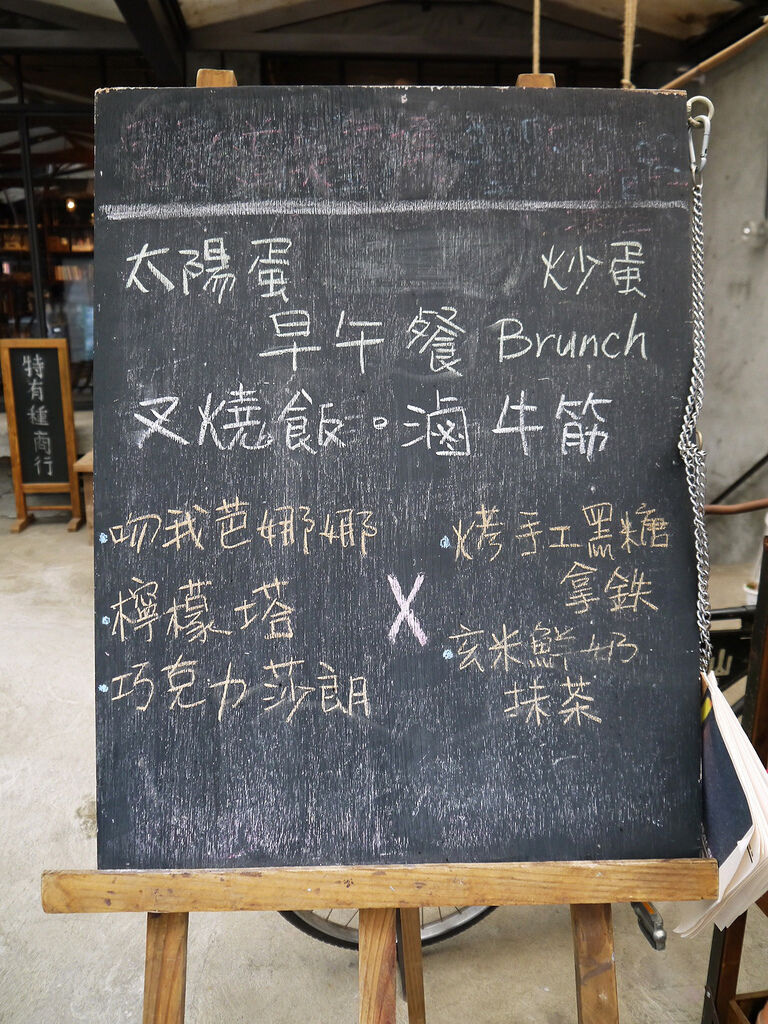 太陽蛋 炒蛋
早午餐 Brunch
叉燒飯。滷牛筋
吻我芭娜娜
檸檬塔
巧克力莎朗
X
烤手工黑糖
拿鉄
玄米鮮奶
抹茶
特有種商行
山